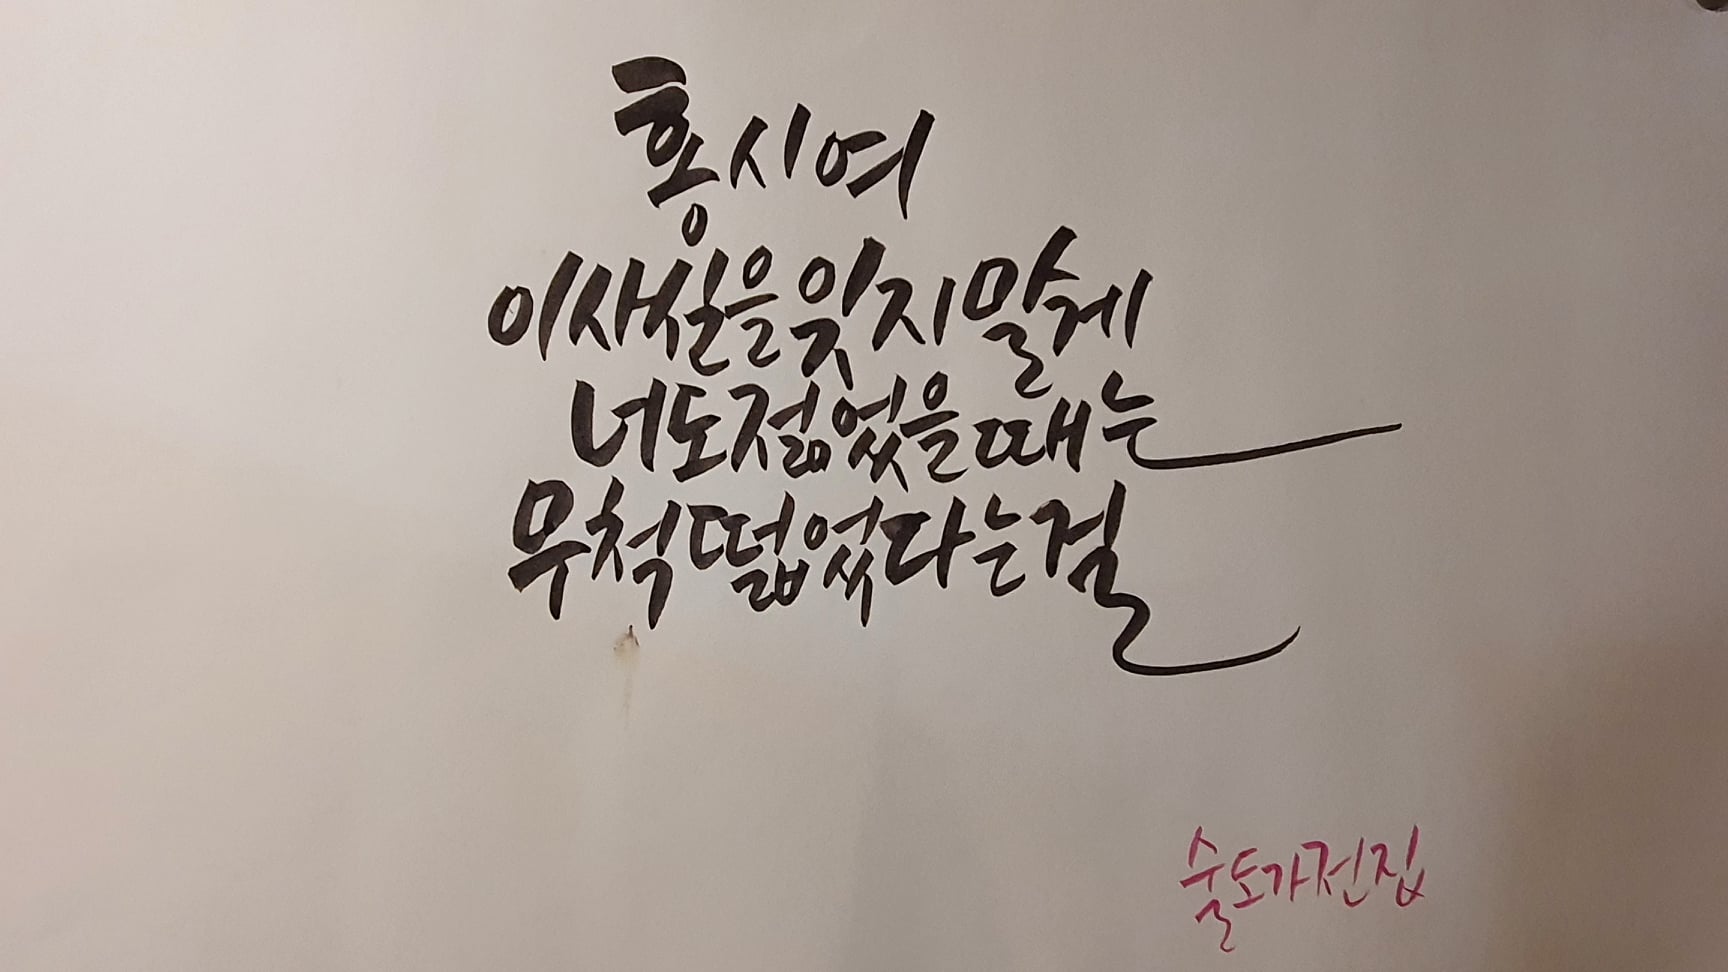 홍시여
이사실을잊지말게
너도젊었을때는
무척떫었다는걸
술도가전집